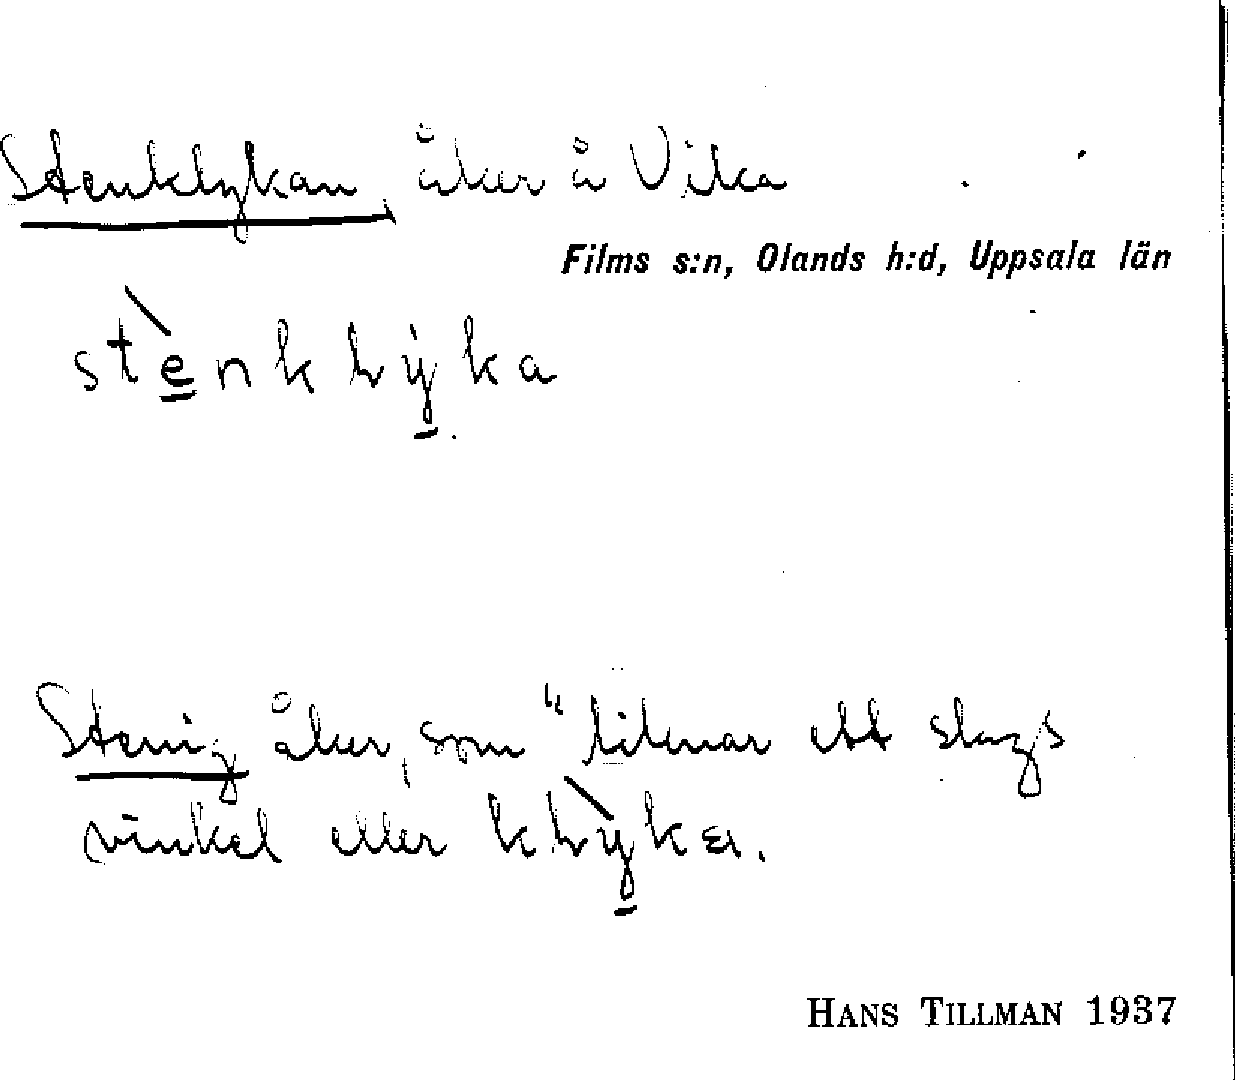 Stenklykan, åker å Vika
Films s:n, Olands h:d, Uppsala län
stènklyka
Stenig åker, som "liknar ett slags
vinkel eller klỳka.
HANS TILLMAN 1937